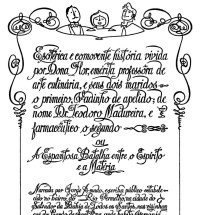 Esotérica e comovente história vivida
por Dona Flor, emérita professora de
arte culinária, e seus dois maridos—
o primeiro, Vadinho de apelido; de
nome Dr. Teodoro Madureira, e
farmacêutico o segundo
ou
A Espantosa Batalha entre o Espírito
e a Matéria
Narrada por Jorge Amado, escriba público estabele-
cido no bairro do Rio Vermelho, na cidade do
Salvador da Bahia de Todos os Santos,